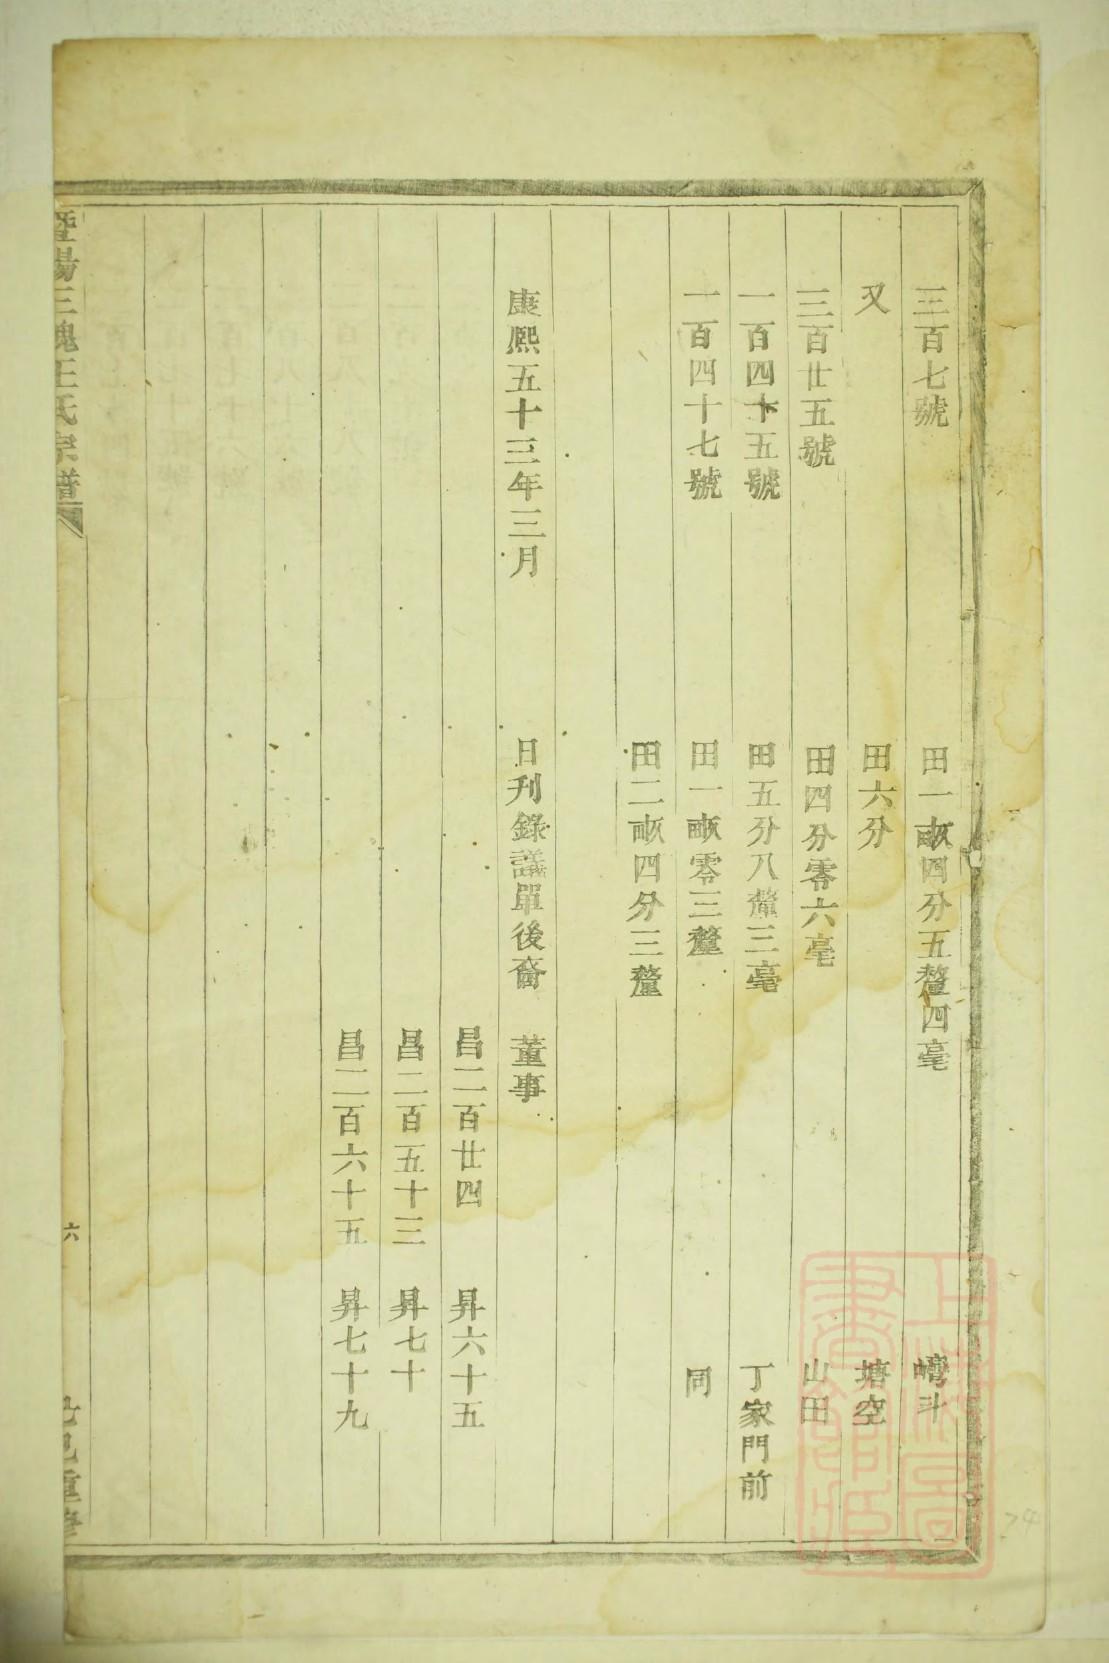 三百七號　田一畝四分五釐四毫　灣斗
又　田六分　塘空
三百廿五號　田四分零六毫　山田
一百四十五號　田五分八釐三毫　丁家門前
一百四十七號　田一畝零三釐　同
田二畝四分三釐
康熙五十三年三月　日刊錄議單後裔　董事
昌二百廿四　昇六十五
昌二百五十三　昇七十
昌二百六十五　昇七十九
暨陽三槐王氏宗譜　六　己巳重修
上海圖書館藏
74